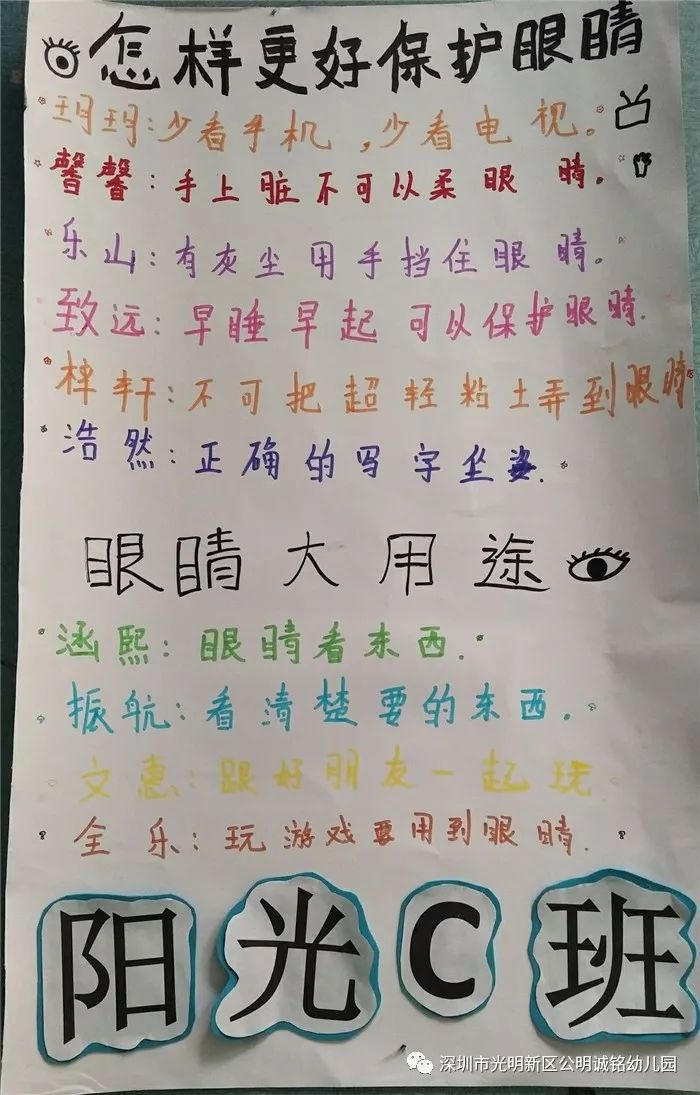 怎样更好保护眼睛
玥玥:少看手机,少看电视。
馨馨:手上脏不可以柔眼睛。
乐山:有灰尘用手挡住眼睛。
致远:早睡早起可以保护眼睛.
梓轩:不可把超轻粘土弄到眼睛
浩然:正确的写字坐姿.
眼睛大用途
涵熙:眼睛看东西.
振航:看清楚要的东西.
文惠:跟好朋友一起玩.
全乐:玩游戏要用到眼睛.
阳光C班
深圳市光明新区公明诚铭幼儿园